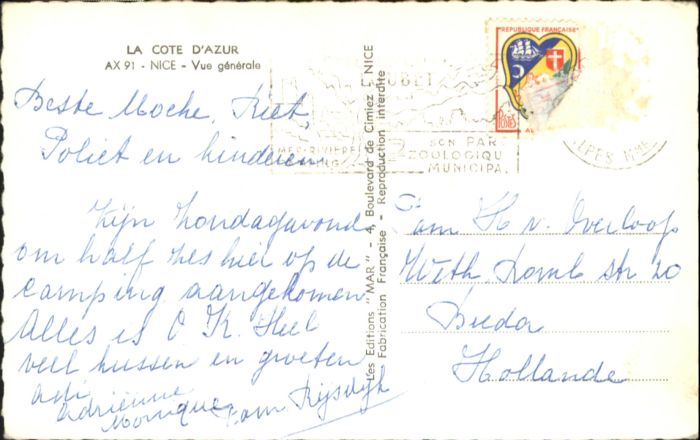 LA COTE D'AZUR
AX 91 - NICE - Vue générale
Beste Moche, Riet,
Poliet en kinderen
Zijn Zondagavond
om half zes hier op de
camping aangekomen
Alles is O K. Heel
veel kussen en groeten
Adrienne
Monique Cam Rijsdijk
Les Editions "MAR" - 4, Boulevard de Cimiez, NICE
Fabrication Française - Reproduction interdite
REPUBLIQUE FRANÇAISE
POSTES
LOUBET
MER RIVIERE
SON PAR
ZOOLOGIQU
MUNICIPAL
ALPES MME
Fam H v. Overloop
Weth. Romb str 20
Breda
Hollande